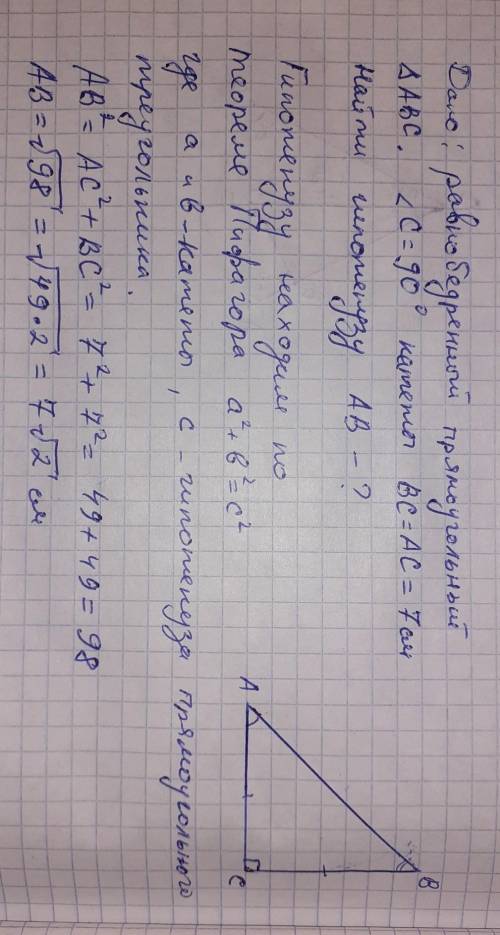 Дано: равнобедренный прямоугольный
ΔABC. ∠C=90° катеты BC=AC=7см
Найти гипотенузу AB-?
Гипотенузу находим по
теореме Пифагора a²+b²=c²
где a и b-катеты, c-гипотенуза прямоугольного
треугольника.
AB²=AC²+BC²=7²+7²=49+49=98
AB=√98=√49·2=7√2 см
A
B
C